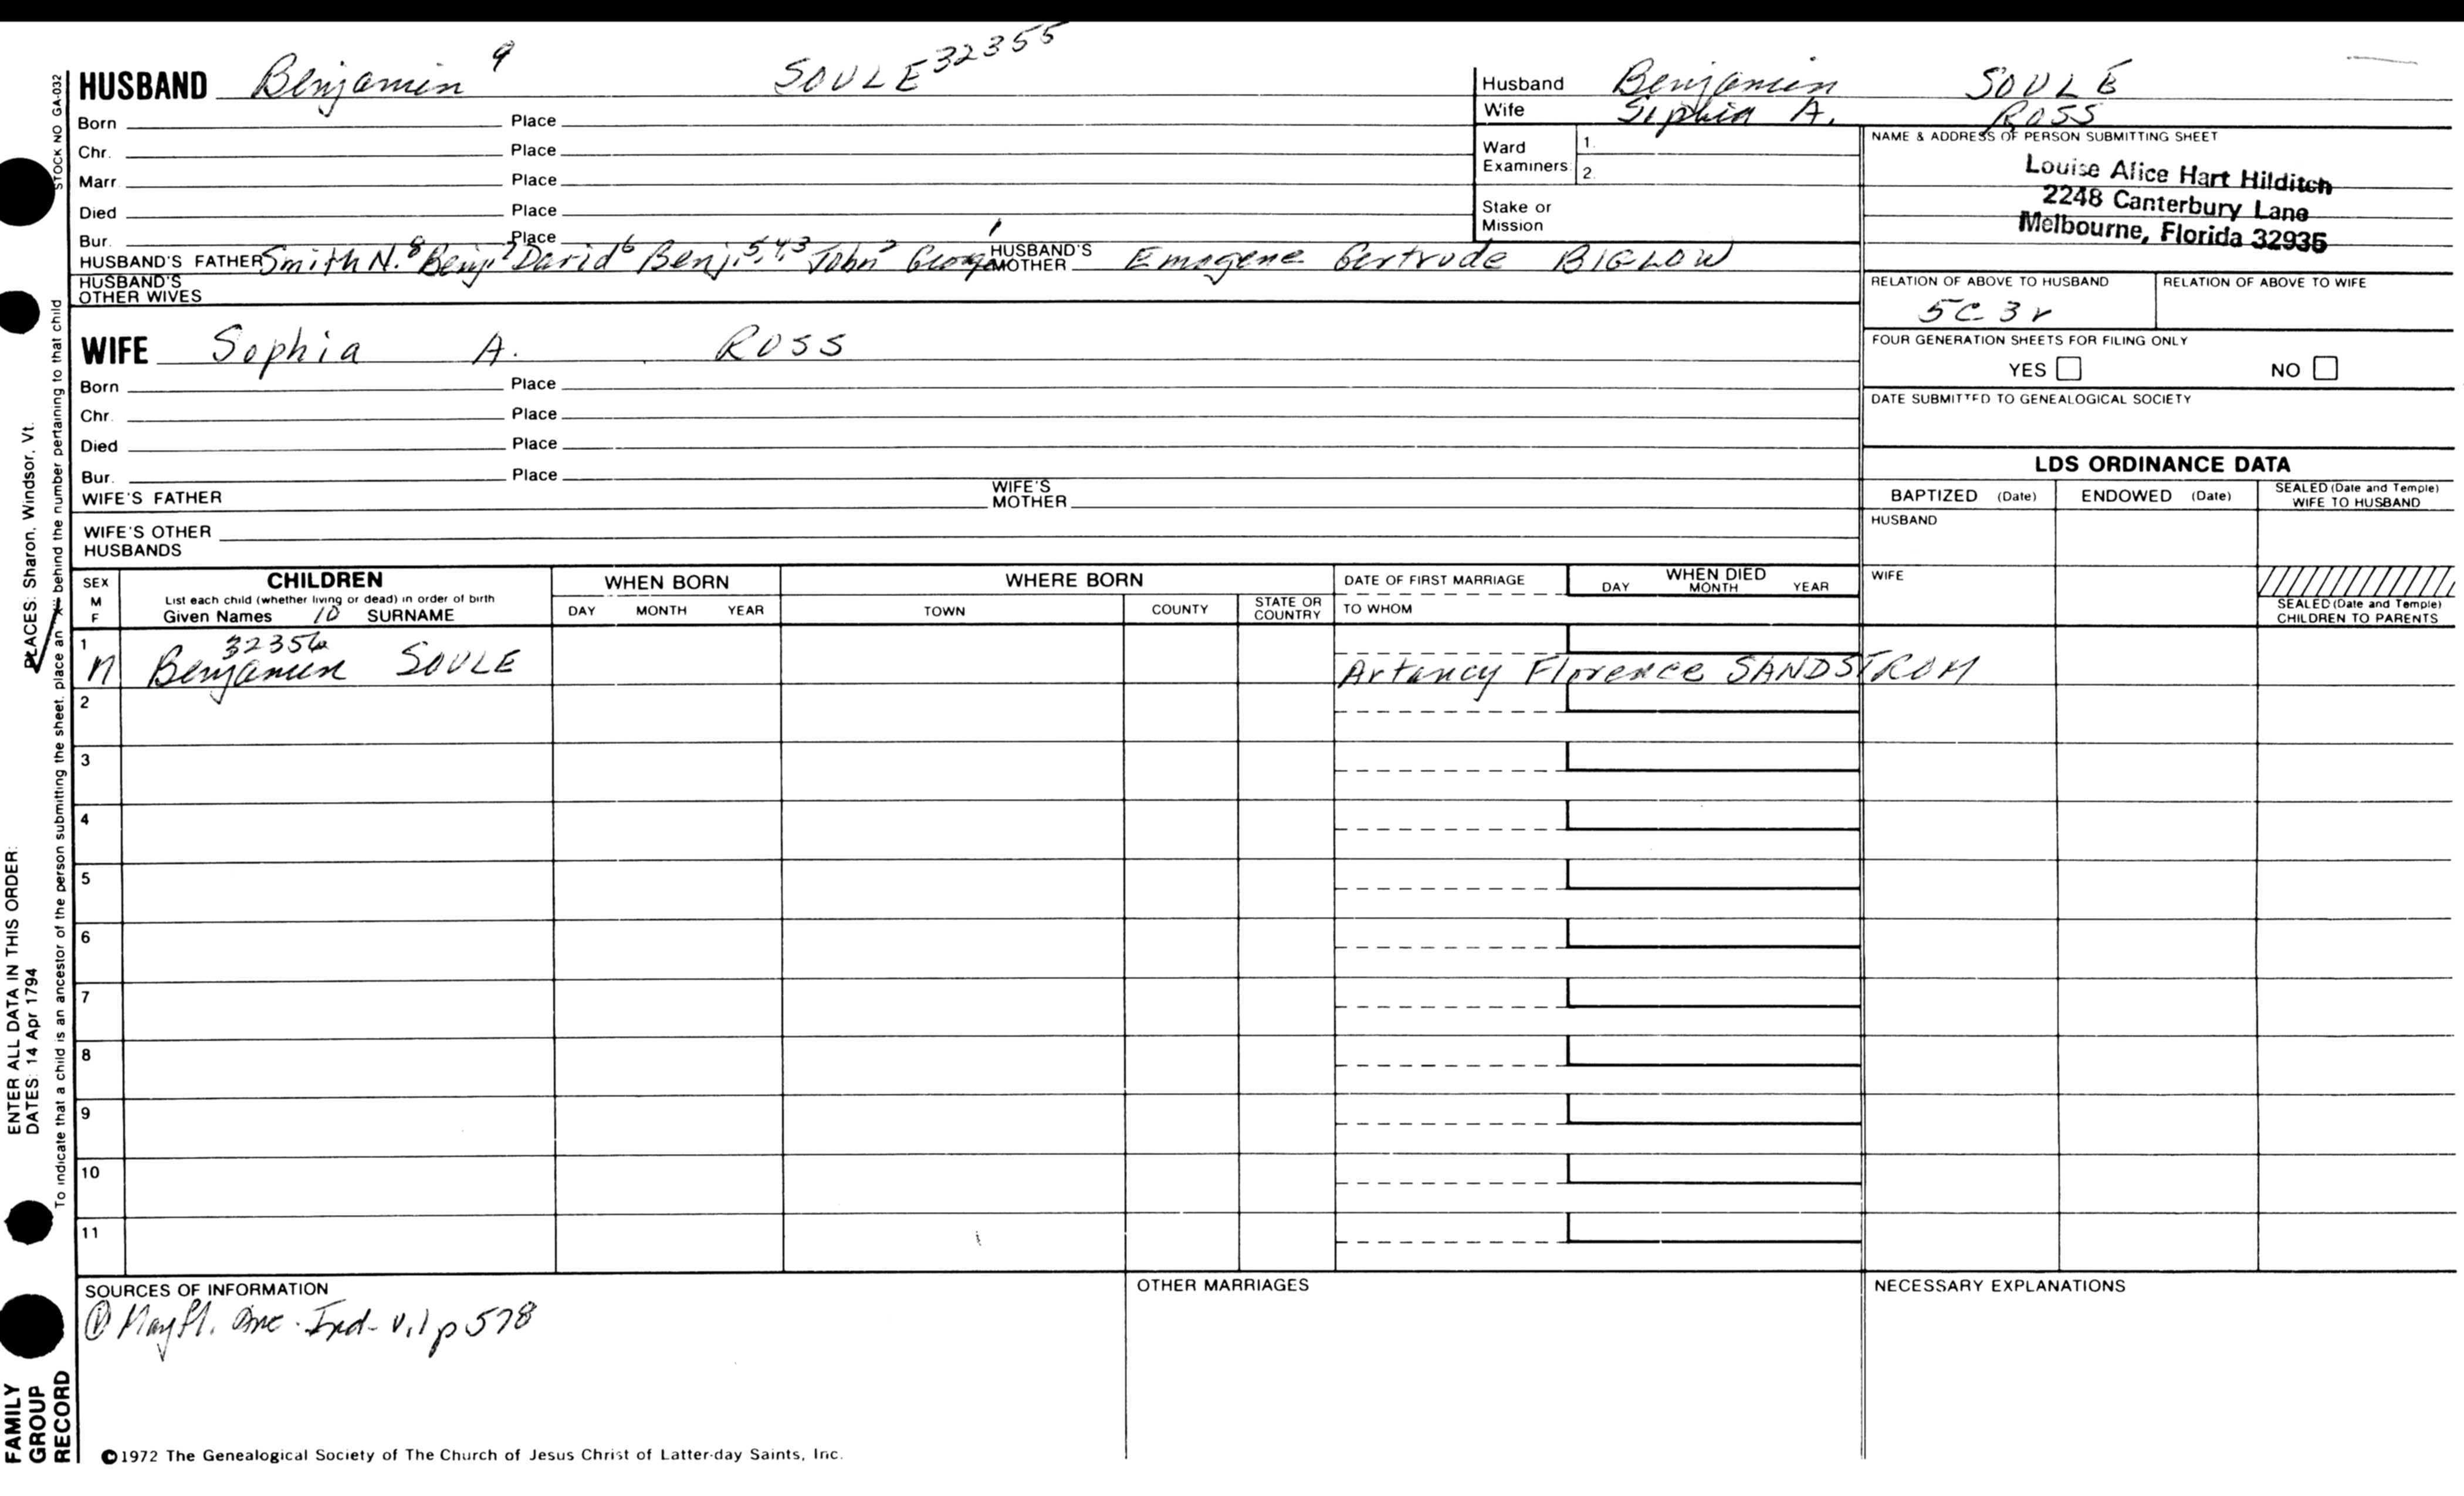 HUSBAND Benjamin 9 SOULE 32355
Born Place
Chr. Place
Marr. Place
Died Place
Bur. Place
HUSBAND'S FATHER Smith N.8 Benj7 David6 Benj.5,4,3 John2 George1 HUSBAND'S MOTHER Emogene Gertrude BIGLOW
HUSBAND'S OTHER WIVES
WIFE Sophia A. ROSS
Born Place
Chr. Place
Died Place
Bur. Place
WIFE'S FATHER WIFE'S MOTHER
WIFE'S OTHER HUSBANDS
Husband Benjamin SOULE
Wife Sophia A. ROSS
Ward Examiners 1.
2.
Stake or Mission
NAME & ADDRESS OF PERSON SUBMITTING SHEET
Louise Alice Hart Hilditch
2248 Canterbury Lane
Melbourne, Florida 32935
RELATION OF ABOVE TO HUSBAND RELATION OF ABOVE TO WIFE
5C 3r
FOUR GENERATION SHEETS FOR FILING ONLY
YES NO
DATE SUBMITTED TO GENEALOGICAL SOCIETY
LDS ORDINANCE DATA
BAPTIZED (Date) ENDOWED (Date) SEALED (Date and Temple) WIFE TO HUSBAND
HUSBAND
WIFE
SEALED (Date and Temple) CHILDREN TO PARENTS
SEX M F
CHILDREN
List each child (whether living or dead) in order of birth
Given Names 10 SURNAME
WHEN BORN
DAY MONTH YEAR
WHERE BORN
TOWN COUNTY STATE OR COUNTRY
DATE OF FIRST MARRIAGE
TO WHOM
WHEN DIED
DAY MONTH YEAR
1
32356
M Benjamin SOULE Artancy Florence SANDSTROM
2
3
4
5
6
7
8
9
10
11
SOURCES OF INFORMATION
① Mayfl. Anc. Ind- v.1 p 578
OTHER MARRIAGES
NECESSARY EXPLANATIONS
©1972 The Genealogical Society of The Church of Jesus Christ of Latter-day Saints, Inc.
STOCK NO GA-032
To indicate that a child is an ancestor of the person submitting the sheet, place an behind the number pertaining to that child
ENTER ALL DATA IN THIS ORDER:
DATES: 14 Apr 1794 PLACES: Sharon, Windsor, Vt.
FAMILY
GROUP
RECORD